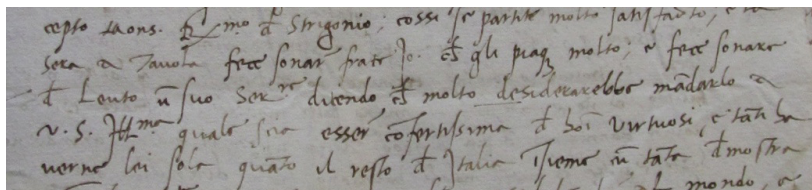 cepto Mons. R.mo d Strigonio; cossi se partite molto satisfacto, e la
sera a Tavola fece sonar frate Jo. ch gli piaq molto; e fece sonare
d Leuto un suo Ser.re dicendo ch molto desiderarebbe mādarlo a
v. S. Ill.ma quale scia esser cōfertissima d hoī virtuosi, e tāti ha
verne lei sola quāto il resto d Italia Tieme cū tāta dmostra
l mondo, e